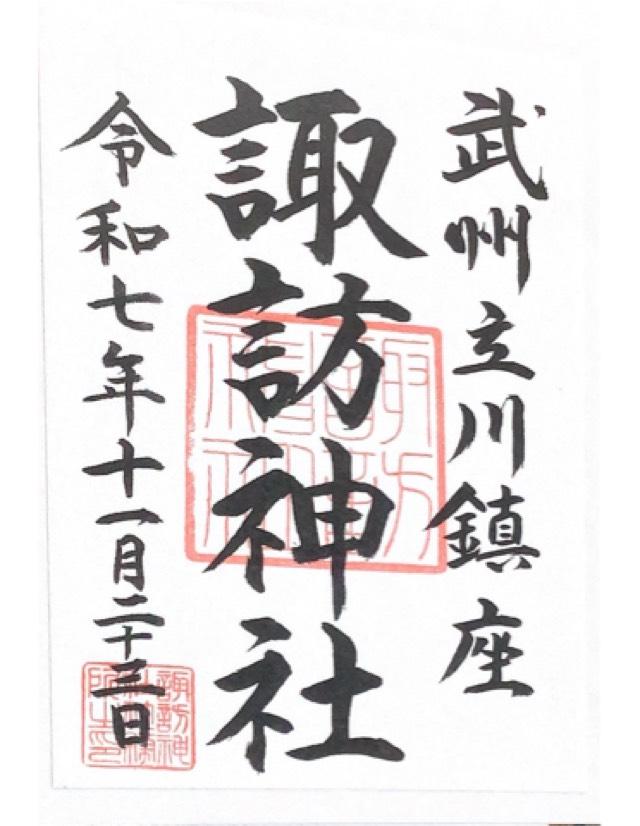 武州立川鎮座
諏訪神社
令和七年十一月二十三日
諏訪神社